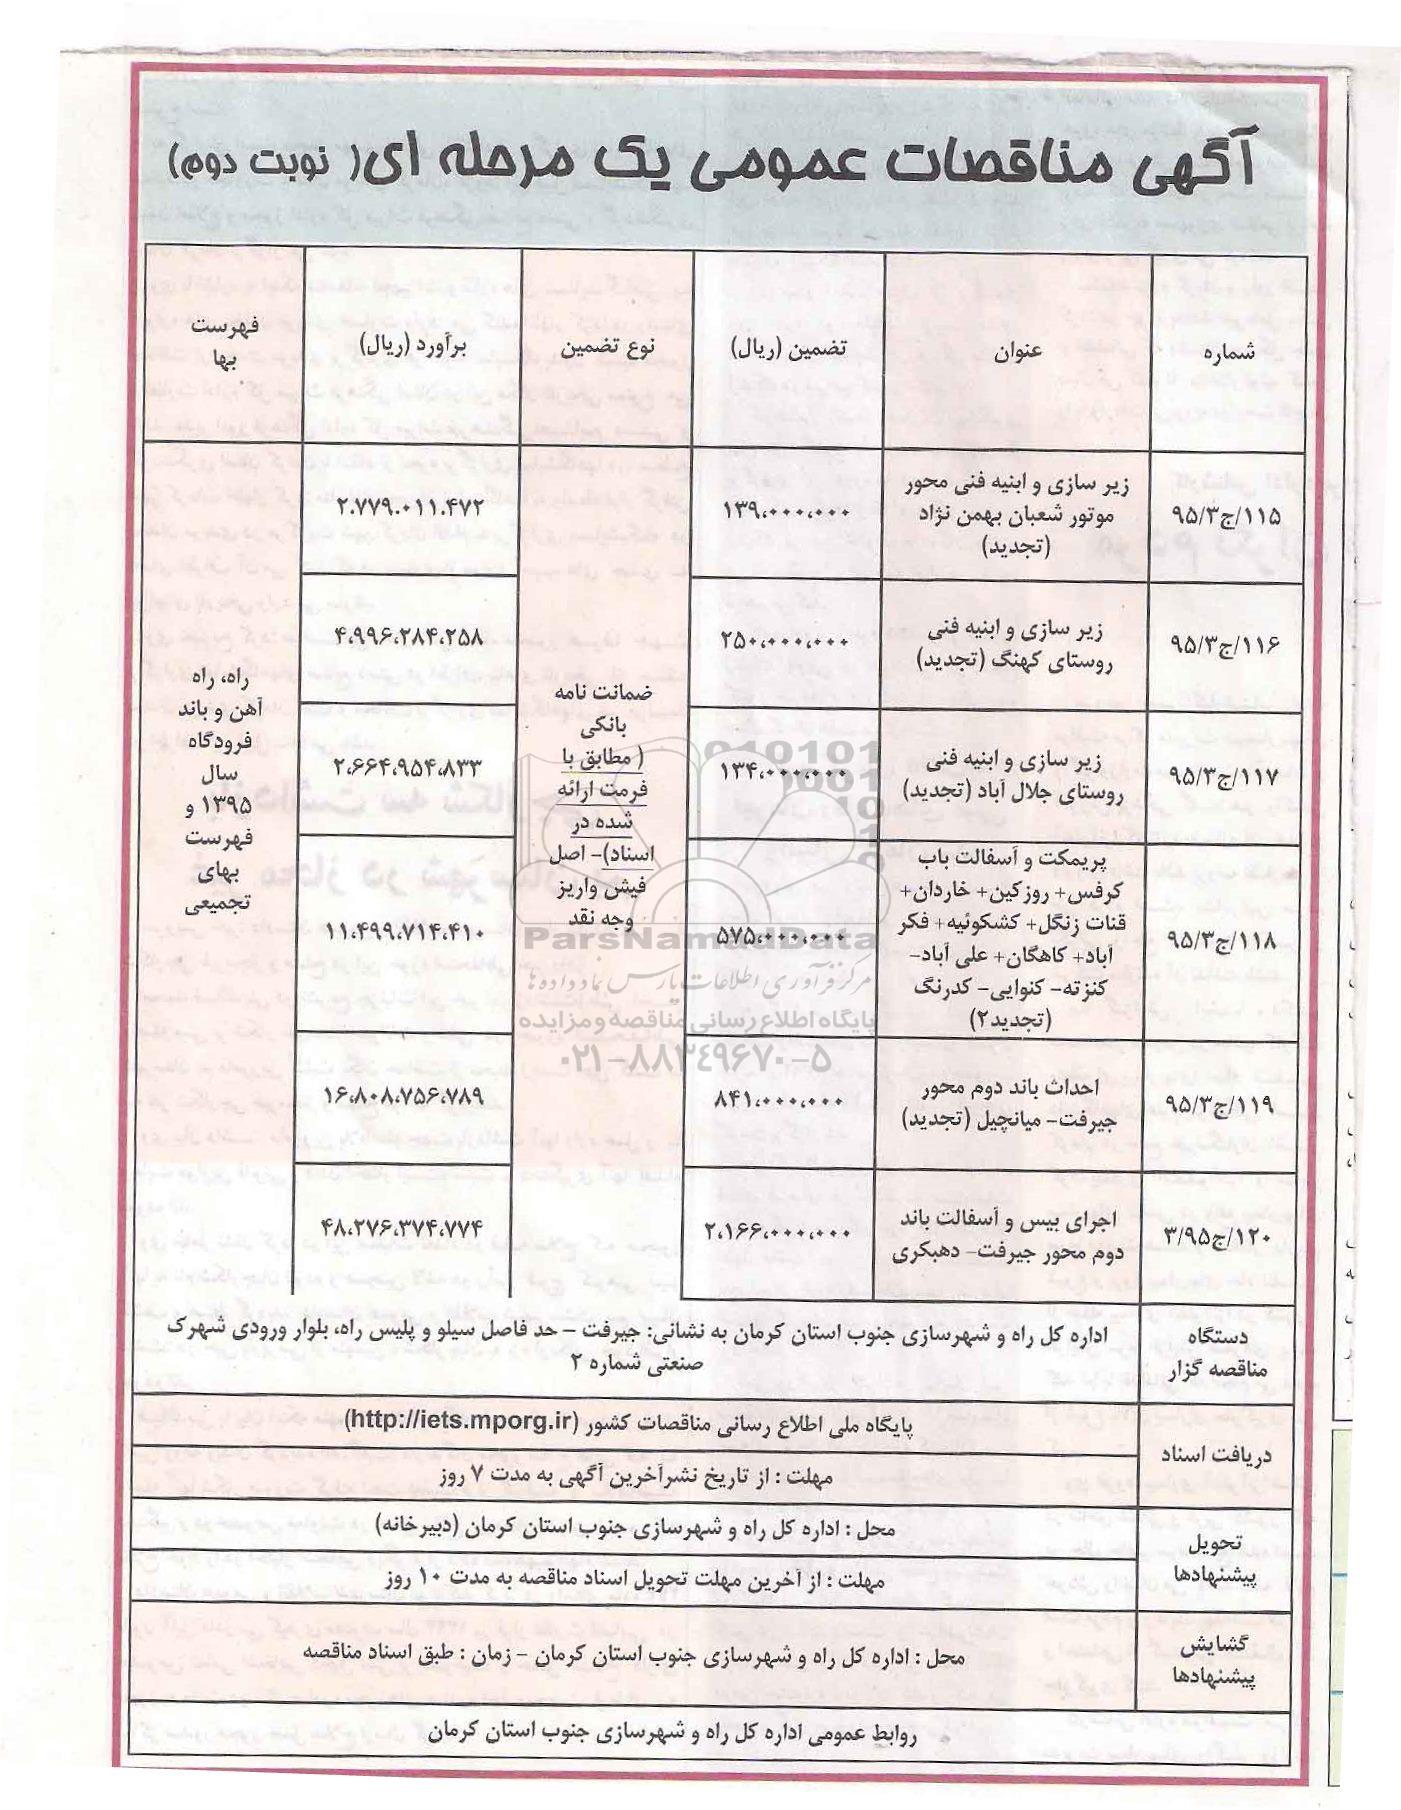 آگهی مناقصات عمومی یک مرحله ای( نوبت دوم)
شماره
عنوان
تضمین (ریال)
نوع تضمین
برآورد (ریال)
فهرست
بها
۱۱۵/ج۹۵/۳
زیر سازی و ابنیه فنی محور
موتور شعبان بهمن نژاد
(تجدید)
۱۳۹،۰۰۰،۰۰۰
۲.۷۷۹.۰۱۱.۴۷۲
۱۱۶/ج۹۵/۳
زیر سازی و ابنیه فنی
روستای کهنگ (تجدید)
۲۵۰،۰۰۰،۰۰۰
۴،۹۹۶،۲۸۴،۲۵۸
۱۱۷/ج۹۵/۳
زیر سازی و ابنیه فنی
روستای جلال آباد (تجدید)
۱۳۴،۰۰۰،۰۰۰
۲،۶۶۴،۹۵۴،۸۳۳
۱۱۸/ج۹۵/۳
پریمکت و آسفالت باب
کرفس+ روزکین+ خاردان+
قنات زنگل+ کشکوئیه+ فکر
آباد+ کاهگان+ علی آباد-
کنزته- کنوایی- کدرنگ
(تجدید۲)
۵۷۵،۰۰۰،۰۰۰
۱۱،۴۹۹،۷۱۴،۴۱۰
۱۱۹/ج۹۵/۳
احداث باند دوم محور
جیرفت- میانچیل (تجدید)
۸۴۱،۰۰۰،۰۰۰
۱۶،۸۰۸،۷۵۶،۷۸۹
۱۲۰/ج۳/۹۵
اجرای بیس و آسفالت باند
دوم محور جیرفت- دهبکری
۲،۱۶۶،۰۰۰،۰۰۰
۴۸،۲۷۶،۳۷۴،۷۷۴
ضمانت نامه
بانکی
( مطابق با
فرمت ارائه
شده در
اسناد)- اصل
فیش واریز
وجه نقد
راه، راه
آهن و باند
فرودگاه
سال
۱۳۹۵ و
فهرست
بهای
تجمیعی
010101
0001
10
ParsNamadData
مرکز فرآوری اطلاعات پارس نماد داده ها
پایگاه اطلاع رسانی مناقصه و مزایده
۰۲۱-۸۸۳۴۹۶۷۰-۵
دستگاه
مناقصه گزار
اداره کل راه و شهرسازی جنوب استان کرمان به نشانی: جیرفت - حد فاصل سیلو و پلیس راه، بلوار ورودی شهرک
صنعتی شماره ۲
دریافت اسناد
پایگاه ملی اطلاع رسانی مناقصات کشور (http://iets.mporg.ir)
مهلت : از تاریخ نشرآخرین آگهی به مدت ۷ روز
تحویل
پیشنهادها
محل : اداره کل راه و شهرسازی جنوب استان کرمان (دبیرخانه)
مهلت : از آخرین مهلت تحویل اسناد مناقصه به مدت ۱۰ روز
گشایش
پیشنهادها
محل : اداره کل راه و شهرسازی جنوب استان کرمان - زمان : طبق اسناد مناقصه
روابط عمومی اداره کل راه و شهرسازی جنوب استان کرمان